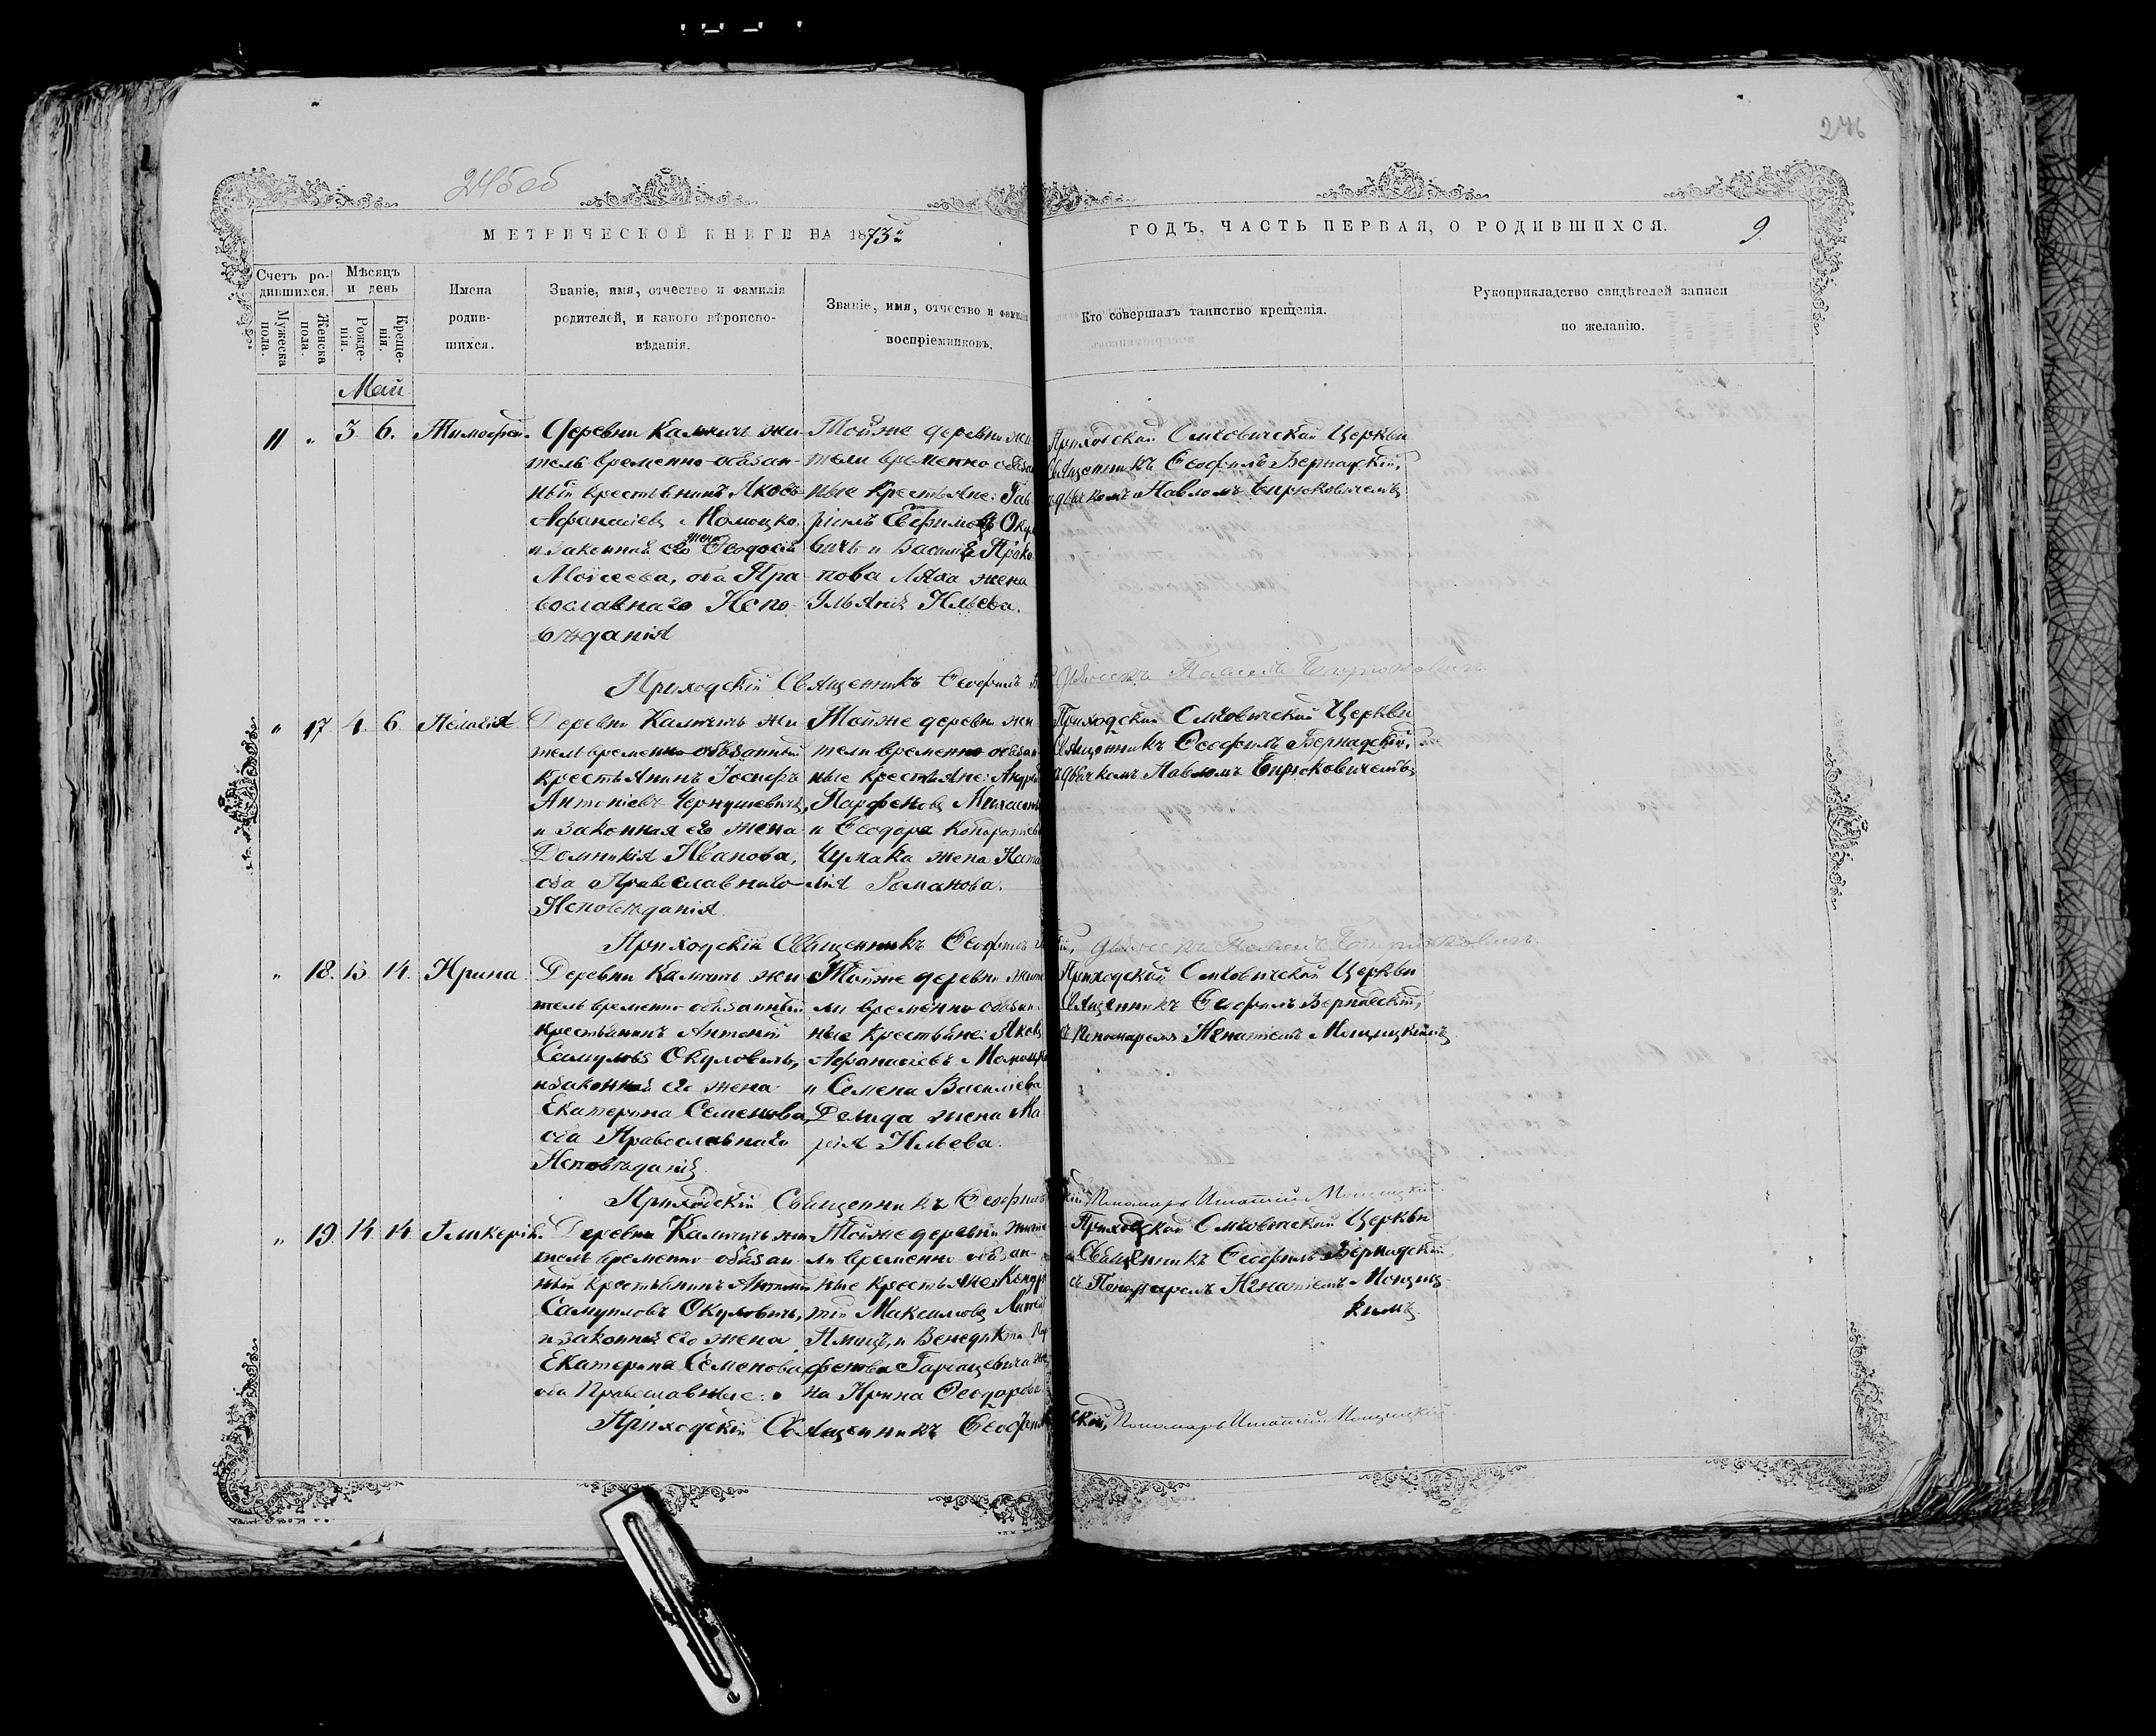 276
245 об
МЕТРИЧЕСКОЙ КНИГИ НА 1873й
ГОДЪ, ЧАСТЬ ПЕРВАЯ, О РОДИВШИХСЯ.
9
Счетъ родившихся.
Мужеска пола.
Женска пола.
Мѣсяцъ и день
Рожденія.
Крещенія.
Имена родившихся.
Званіе, имя, отчество и фамилія родителей, и какого вѣроисповѣданія.
Званіе, имя, отчество и фамилія
воспріемниковъ.
Кто совершалъ таинство крещенія.
Рукоприкладство свидѣтелей записи
по желанію.
Май
11 " 3. 6. Тимофей.
Деревни жи-
тель временно-обязан-
ный крестьянинъ Яковъ
Афанасіевъ
и законная его жена Ѳеодосія
Моисеева, оба Пра-
вославнаго Испо-
вѣданія
Тойже деревни жи
тели временно обязан
ные Крестьяне: Гав
ріилъ Ефимовъ Оку
вичъ и Василія Проко
пова Ляха жена
Ульянія Ильева.
Приходскій Церкви
Священникъ Ѳеофилъ Бернадскій,
съ дьячкомъ Павломъ Бирюковичемъ
Приходскій Священникъ Ѳеофилъ
дьячекъ Павелъ Бирюковичъ.
" 17 4. 6 Пелагія
Деревни жи
тель временно обязанный
крестьянинъ Іосифъ
Антоніевъ Чернушевичъ,
и законная его жена
Домникія Иванова,
оба Православнаго
Исповѣданія.
Тойже деревни жи
тели временно обязан-
ные крестьяне: Андрей
Парфеновъ
и Ѳеодора Кондратіева
Чумака жена Ната
лія Романова.
Приходскій Церкви
Священникъ Ѳеофилъ Бернадскій,
съ дьячкомъ Павломъ Бирюковичемъ
Приходскій Священникъ Ѳеофилъ
дьячекъ Павелъ Бирюковичъ.
" 18. 13. 14. Ирина
Деревни жи-
тель временно обязанный
крестьянинъ Антоній
Самуиловъ Окуловичъ,
и законная его жена
Екатерина Семенова,
оба Православнаго
Исповѣданія.
Тойже деревни жите
ли временно обязан-
ные Крестьяне: Яковъ
Афанасіевъ
и Семена Василіева
Демида жена Ма
рія Ильева.
Приходскій Церкви
Священникъ Ѳеофилъ Бернадскій,
съ Пономаремъ Игнатіемъ Мощицкимъ
Приходскій Священникъ Ѳеофилъ
Пономарь Игнатій Мощицкій.
" 19. 14. 14. Гликерія.
Деревни жи-
тель временно-обязан
ный крестьянинъ Антоній
Самуиловъ Окуловичъ,
и законная его жена
Екатерина Семенова,
оба Православные.
Тойже деревни жите
ли временно обязан-
ные крестьяне: Кондра
тій Максимовъ
и Венедикта Пар
фенова же
на Ирина Ѳеодорова
Приходскій Церкви
Священникъ Ѳеофилъ Бернадскій
съ Пономаремъ Игнатіемъ Мощиц-
кимъ.
Приходскій Священникъ Ѳеофилъ
скій, Пономарь Игнатій Мощицкій